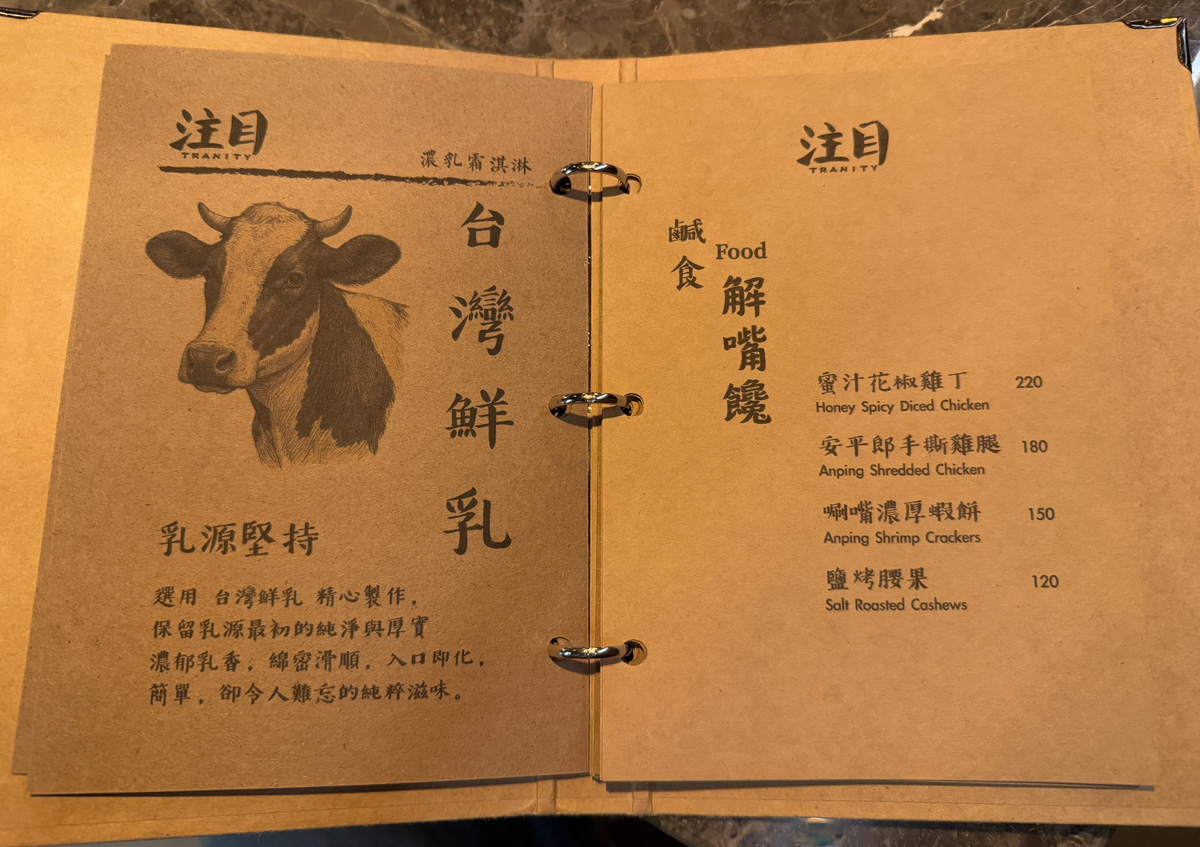 注目
TRANITY
濃乳霜淇淋
台灣鮮乳
乳源堅持
選用 台灣鮮乳 精心製作，
保留乳源最初的純淨與厚實
濃郁乳香，綿密滑順，入口即化，
簡單，卻令人難忘的純粹滋味。
注目
TRANITY
鹹食
Food
解嘴饞
蜜汁花椒雞丁 220
Honey Spicy Diced Chicken
安平郎手撕雞腿 180
Anping Shredded Chicken
唰嘴濃厚蝦餅 150
Anping Shrimp Crackers
鹽烤腰果 120
Salt Roasted Cashews